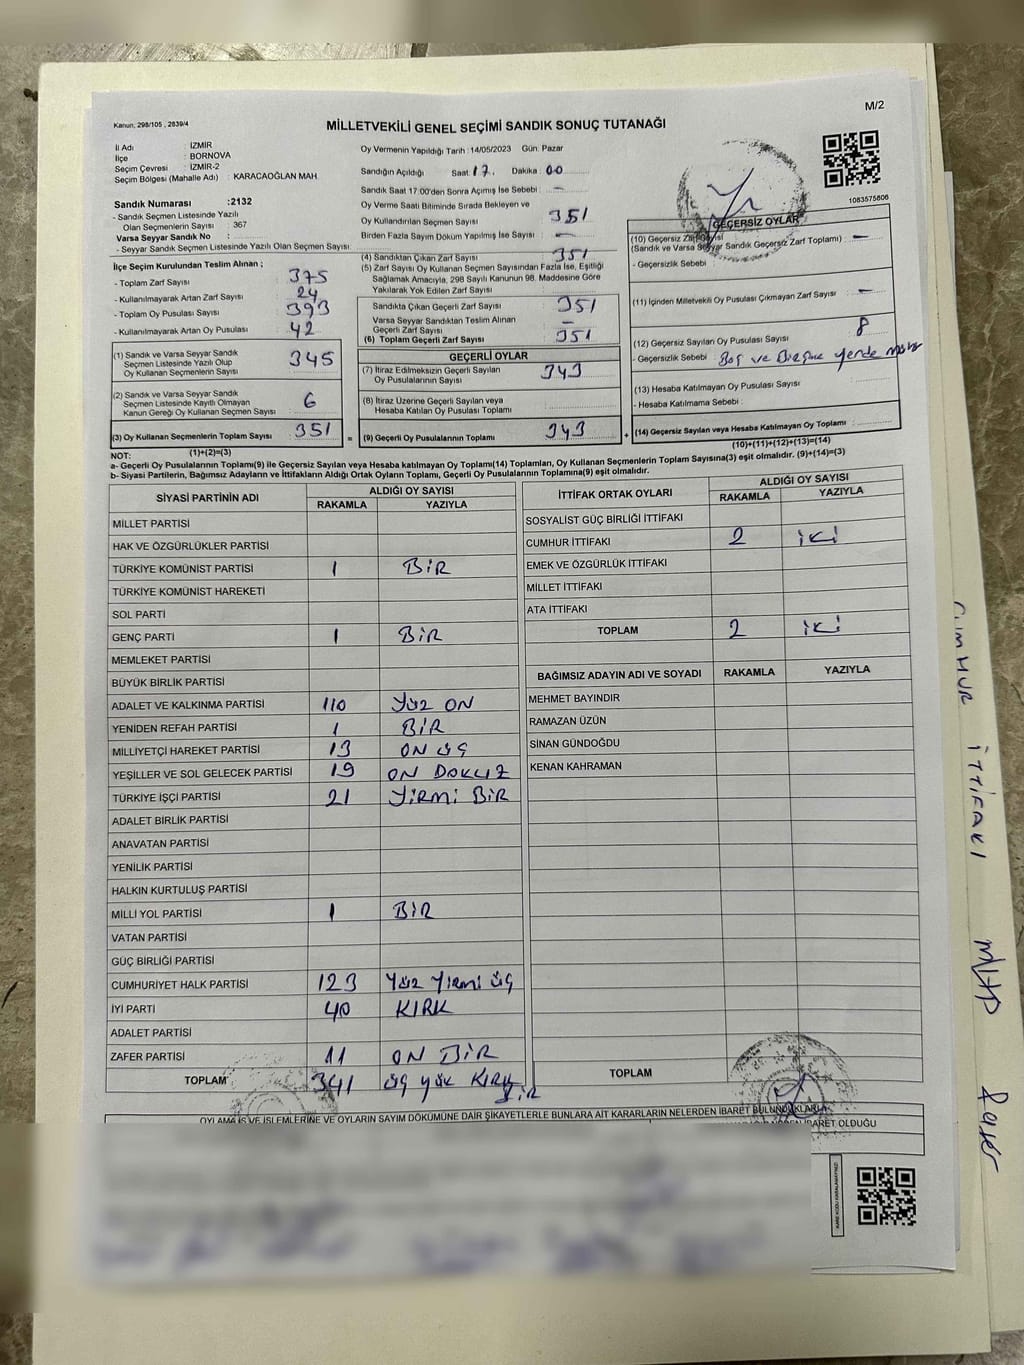 M/2
Kanun, 298/105 , 2839/4
MİLLETVEKİLİ GENEL SEÇİMİ SANDIK SONUÇ TUTANAĞI
İl Adı : İZMİR
İlçe : BORNOVA
Seçim Çevresi : İZMİR-2
Seçim Bölgesi (Mahalle Adı) : KARACAOĞLAN MAH.
Sandık Numarası :2132
- Sandık Seçmen Listesinde Yazılı
Olan Seçmenlerin Sayısı : 367
Varsa Seyyar Sandık No :
- Seyyar Sandık Seçmen Listesinde Yazılı Olan Seçmen Sayısı
İlçe Seçim Kurulundan Teslim Alınan ;
- Toplam Zarf Sayısı 375
- Kullanılmayarak Artan Zarf Sayısı 24
- Toplam Oy Pusulası Sayısı 393
- Kullanılmayarak Artan Oy Pusulası 42
(1) Sandık ve Varsa Seyyar Sandık
Seçmen Listesinde Yazılı Olup
Oy Kullanan Seçmenlerin Sayısı 345
(2) Sandık ve Varsa Seyyar Sandık
Seçmen Listesinde Kayıtlı Olmayan
Kanun Gereği Oy Kullanan Seçmen Sayısı 6
(3) Oy Kullanan Seçmenlerin Toplam Sayısı 351
(1)+(2)=(3)
Oy Vermenin Yapıldığı Tarih : 14/05/2023 Gün: Pazar
Sandığın Açıldığı Saat: 17. Dakika : 00
Sandık Saat 17:00'den Sonra Açılmış İse Sebebi : -
Oy Verme Saati Bitiminde Sırada Bekleyen ve
Oy Kullandırılan Seçmen Sayısı 351
Birden Fazla Sayım Döküm Yapılmış İse Sayısı : -
(4) Sandıktan Çıkan Zarf Sayısı 351
(5) Zarf Sayısı Oy Kullanan Seçmen Sayısından Fazla İse, Eşitliği
Sağlamak Amacıyla, 298 Sayılı Kanunun 98. Maddesine Göre
Yakılarak Yok Edilen Zarf Sayısı
Sandıkta Çıkan Geçerli Zarf Sayısı 351
Varsa Seyyar Sandıktan Teslim Alınan
Geçerli Zarf Sayısı -
(6) Toplam Geçerli Zarf Sayısı 351
GEÇERLİ OYLAR
(7) İtiraz Edilmeksizin Geçerli Sayılan
Oy Pusulalarının Sayısı 343
(8) İtiraz Üzerine Geçerli Sayılan veya
Hesaba Katılan Oy Pusulası Toplamı
= (9) Geçerli Oy Pusulalarının Toplamı 343 +
1083575806
GEÇERSİZ OYLAR
(10) Geçersiz Zarf Sayısı
(Sandık ve Varsa Seyyar Sandık Geçersiz Zarf Toplamı) : -
- Geçersizlik Sebebi :
(11) İçinden Milletvekili Oy Pusulası Çıkmayan Zarf Sayısı -
(12) Geçersiz Sayılan Oy Pusulası Sayısı 8
- Geçersizlik Sebebi : Boş ve Birçok yerde mühür
(13) Hesaba Katılmayan Oy Pusulası Sayısı
- Hesaba Katılmama Sebebi :
(14) Geçersiz Sayılan veya Hesaba Katılmayan Oy Toplamı :
(10)+(11)+(12)+(13)=(14)
NOT:
a- Geçerli Oy Pusulalarının Toplamı(9) ile Geçersiz Sayılan veya Hesaba katılmayan Oy Toplamı(14) Toplamları, Oy Kullanan Seçmenlerin Toplam Sayısına(3) eşit olmalıdır. (9)+(14)=(3)
b- Siyasi Partilerin, Bağımsız Adayların ve İttifakların Aldığı Oy Sayıların Toplamı, Geçerli Oy Pusulalarının Toplamına(9) eşit olmalıdır.
SİYASİ PARTİNİN ADI ALDIĞI OY SAYISI
RAKAMLA YAZIYLA
MİLLET PARTİSİ
HAK VE ÖZGÜRLÜKLER PARTİSİ
TÜRKİYE KOMÜNİST PARTİSİ 1 BİR
TÜRKİYE KOMÜNİST HAREKETİ
SOL PARTİ
GENÇ PARTİ 1 BİR
MEMLEKET PARTİSİ
BÜYÜK BİRLİK PARTİSİ
ADALET VE KALKINMA PARTİSİ 110 YÜZ ON
YENİDEN REFAH PARTİSİ 1 BİR
MİLLİYETÇİ HAREKET PARTİSİ 13 ON ÜÇ
YEŞİLLER VE SOL GELECEK PARTİSİ 19 ON DOKUZ
TÜRKİYE İŞÇİ PARTİSİ 21 YİRMİ BİR
ADALET BİRLİK PARTİSİ
ANAVATAN PARTİSİ
YENİLİK PARTİSİ
HALKIN KURTULUŞ PARTİSİ
MİLLİ YOL PARTİSİ 1 BİR
VATAN PARTİSİ
GÜÇ BİRLİĞİ PARTİSİ
CUMHURİYET HALK PARTİSİ 123 YÜZ YİRMİ ÜÇ
İYİ PARTİ 40 KIRK
ADALET PARTİSİ
ZAFER PARTİSİ 11 ON BİR
TOPLAM 341 ÜÇ YÜZ KIRK BİR
İTTİFAK ORTAK OYLARI ALDIĞI OY SAYISI
RAKAMLA YAZIYLA
SOSYALİST GÜÇ BİRLİĞİ İTTİFAKI
CUMHUR İTTİFAKI 2 İKİ
EMEK VE ÖZGÜRLÜK İTTİFAKI
MİLLET İTTİFAKI
ATA İTTİFAKI
TOPLAM 2 İKİ
BAĞIMSIZ ADAYIN ADI VE SOYADI RAKAMLA YAZIYLA
MEHMET BAYINDIR
RAMAZAN ÜZÜN
SİNAN GÜNDOĞDU
KENAN KAHRAMAN
TOPLAM
OYLAMA İŞ VE İŞLEMLERİNE VE OYLARIN SAYIM DÖKÜMÜNE DAİR ŞİKAYETLERLE BUNLARA AİT KARARLARIN NELERDEN İBARET BULUNDUKLARI
İBARET OLDUĞU
KARE KODU KARALAMAYINIZ!
CUMHUR İTTİFAKI MHP